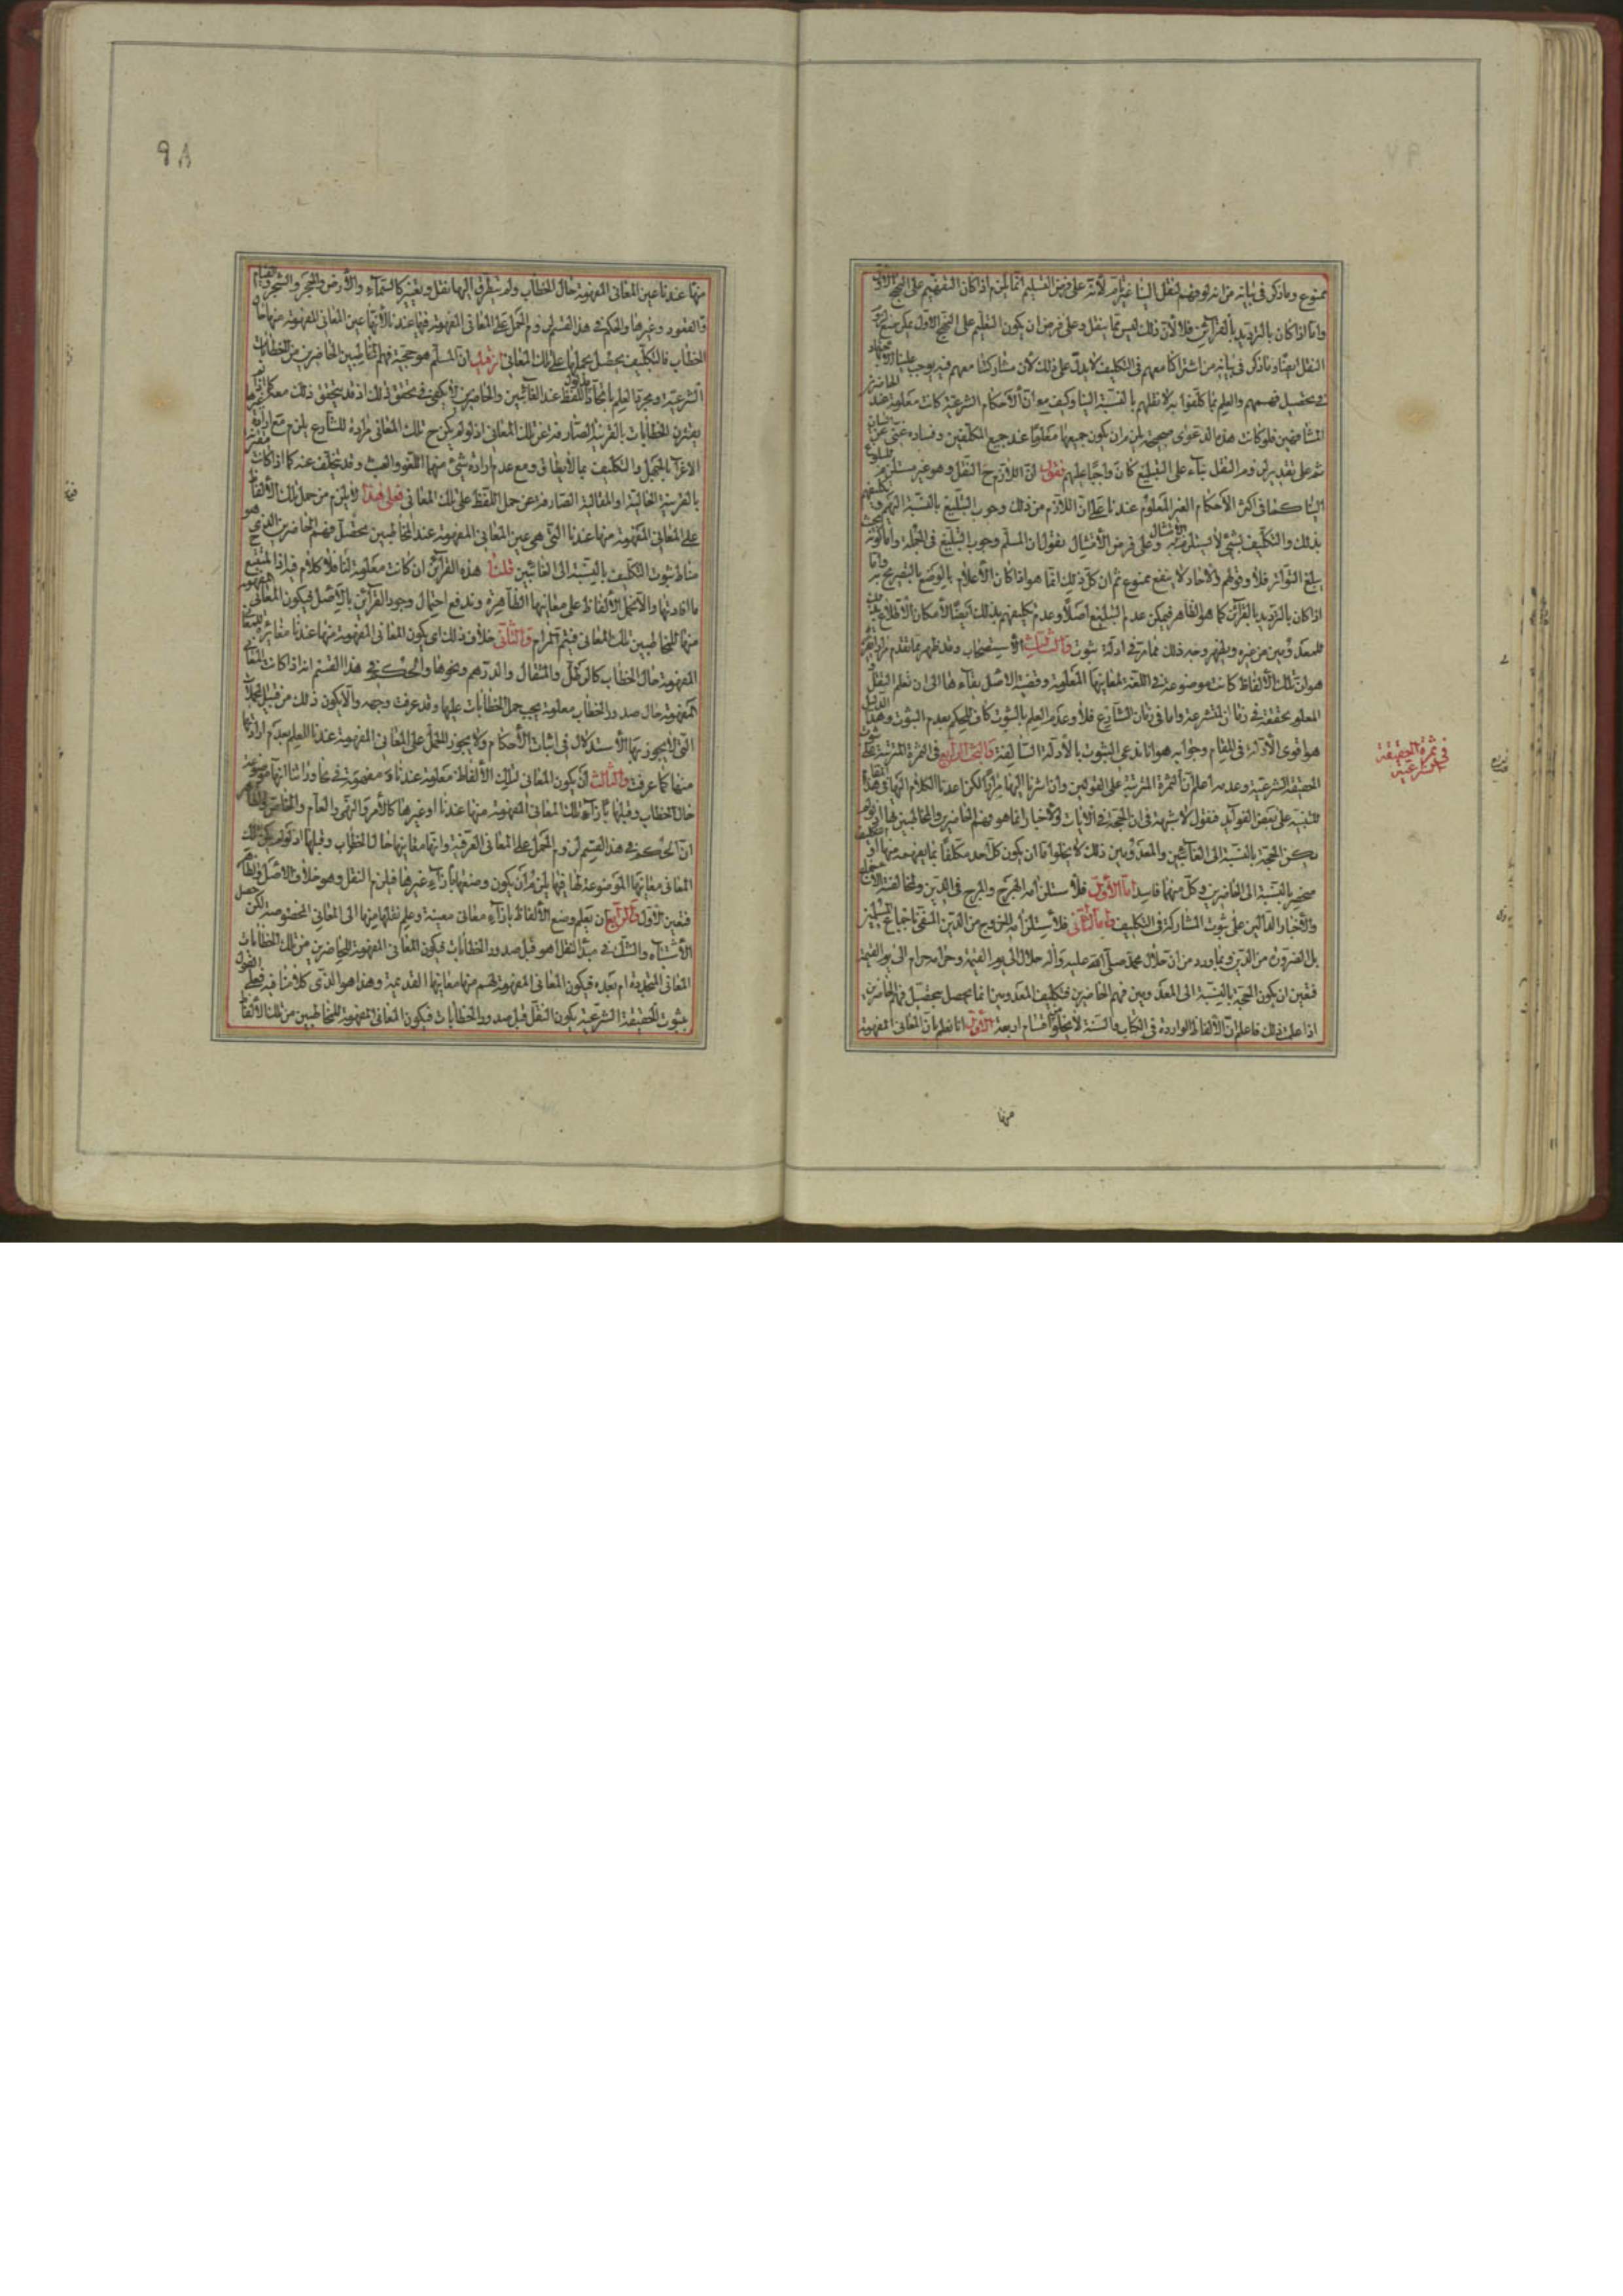 ممنوع وما ذكر فى بيانه من انه لو فهم لنقل الينا غير تام لأنه على فرض التسليم انما يلزم اذا كان التفهيم على النهج الاول
واما اذا كان بالترديد بالقرآئن فلا لأن ذلك ليس مما ينقل وعلى فرض ان يكون التفهيم على النهج الاول يمكن منع لزوم
النقل ايضا وما ذكر فى بيانه من اشتراكنا معهم فى التكليف لا يدل على ذلك لأن مشاركتنا معهم فيه يوجب علينا الاجتهاد
فى تحصيل فهمهم والعلم بما كلفوا به لا نقلهم بالنسبة الينا وكيف مع ان الأحكام الشرعية كانت معلومة عند الحاضرين
المشافهين فلو كانت هذه الدعوى صحيحة يلزم ان يكون جميعها معلوما عند جميع المكلفين وفساده غنى عن البيان
ثم على تقدير لزوم النقل بناء على التبليغ كان واجبا عليهم نقول ان اللازم ح النقل وهو غير مستلزم
الينا كما فى اكثر الأحكام الغير المعلوم عندنا على ان اللازم من ذلك وجوب التبليغ بالنسبة اليهم
بذلك والتكليف بشئ لا يستلزم الأمتثال وعلى فرض الأمتثال نقول ان المسلم وجوب التبليغ فى الجملة واما كونه بحيث
يبلغ التواتر فلا وقولهم والآحاد لا ينفع ممنوع ثم ان كل ذلك انما هو اذا كان الأعلام بالوضع بالتصريح به واما
اذا كان بالترديد بالقرآئن كما هو الظاهر فيمكن عدم التبليغ اصلا وعدم تكليفهم بذلك ايضا لأمكان الأطلاع عليه
للمعدومين من غيره ويظهر وجه ذلك مما مر فى ادلة ثبوت والثالث الأستصحاب وقد ظهر مما تقدم
هو ان تلك الألفاظ كانت موضوعة فى اللغة لمعانيها المعلومة وقضية الاصل بقاءها الى ان نعلم النقل
المعلوم تحققه فى زمان المتشرعة واما فى زمان الشارع فلا وعدم العلم بالثبوت كاف للحكم بعدم الثبوت وهذا الدليل
هو اقوى الأدلة فى المقام وجوابه هو انا ندعى الثبوت بالأدلة السالفة والبحث الرابع فى الثمرة المترتبة على ثبوت
الحقيقة الشرعية وعدمه اعلم ان الثمرة المترتبة على القولين وان اشرنا اليها مرارا لكن اعدنا الكلام اليها فى هذا المقام
للتنبيه على بعض الفوآئد فنقول لا شبهة فى ان الحجة فى الآيات والأخبار انما هو فهم الحاضرين والمخاطبين بها اذ لو لم
يكن الحجة بالنسبة الى الغآئبين والمعدومين ذلك لا يخلوا اما ان يكون كل احد مكلفا بما يفهمه منها او التكليف
منحصر بالنسبة الى الحاضرين وكل منهما فاسد اما الأول فلأستلزامه الهرج والمرج فى الدين ولمخالفته الآيات
والأخبار الدآلين على ثبوت المشاركة فى التكليف واما الثانى فلأستلزامه الخروج من الدين المنفى باجماع المسلمين
بل الضرورة من الدين وبما ورد من ان حلال محمد صلى الله عليه وآله حلال الى يوم القيمة وحرامه حرام الى يوم القيمة
فتعين ان يكون الحجة بالنسبة الى المعدومين فهم الحاضرين فتكليف المعدومين انما يحصل بتحصيل فهم الحاضرين
اذا علمت ذلك فاعلم ان الألفاظ الواردة فى الكتاب والسنة لا يخلوا اقسام اربعة الاول انا نعلم بأن المعانى المفهومة
فى ثمرة الحقيقة
الشرعية
منها
٩٨
منها عندنا عين المعانى المفهومة حال الخطاب ولم يتطرق اليها نقل وتغيير كالسمآء والأرض والحجر والشجر والقيام
والقعود وغيرها والحكم فى هذا القسم لزوم الحمل على المعانى المفهومة فيها عندنا لأنها عين المعانى المفهومة منها حال
الخطاب فالتكليف يحصل بحملها على تلك المعانى ان قيل ان المسلم هو حجية فهم المخاطبين الحاضرين من الخطابات
الشرعية ومجرد العلم باتحاد مدلول اللفظ عند الغآئبين والحاضرين لا يكفى فى تحقق ذلك اذ قد يتحقق ذلك
يقترن الخطابات بالقرينة الصارفة عن تلك المعانى اذ لو لم يكن ح تلك المعانى مرادة للشارع يلزم مع ارادة غيرها
الاغرآء بالجهل والتكليف بما لا يطاق ومع عدم ارادة شئ منها اللغو والعبث وقد يتخلف عنه كما اذا كانت مقترنة
بالقرينة الحالية او المقالية الصارفة عن حمل اللفظ على تلك المعانى فعلى هذا لا يلزم من حمل تلك الألفاظ
على المعانى المفهومة منها عندنا التى هى عين المعانى المفهومة عند المخاطبين تحصيل فهم الحاضرين الذى هو
مناط ثبوت التكليف بالنسبة الى الغائبين قلنا هذه القرآئن ان كانت معلومة لنا فلا كلام فيه اذ المتبع ح
ما افادتها والا نحمل الألفاظ على معانيها الظاهرة وندفع احتمال وجود القرآئن بالأصل فيكون المعانى المفهومة
منها للمخاطبين تلك المعانى فيتم المرام والثانى خلاف ذلك اى يكون المعانى المفهومة منها عندنا مغايرة للمعانى
المفهومة حال الخطاب كالرطل والمثقال والدرهم ونحوها والحكم فى هذا القسم انه اذا كانت المعانى
المفهومة حال صدور الخطاب معلومة يجب حمل الخطابات عليها وقد عرفت وجهه والا يكون ذلك من قبيل المجملات
التى لا يجوز بها الأستدلال فى اثبات الأحكام ولا يجوز الحمل على المعانى المفهومة عندنا للعلم بعدم ارادتها
منها كما عرفت والثالث ان يكون المعانى لتلك الألفاظ معلومة عندنا ومفهومة فى محاوراتنا
حال الخطاب وقبلها بازآء تلك المعانى المفهومة منها عندنا او غيرها كالأمر والنهى والعام والخاص
ان الحكم فى هذا القسم لزوم الحمل على المعانى العرفية وانها معانيها حال الخطاب وقبلها اذ لو لم يكن تلك
المعانى معانيها الموضوعة لها فيها يلزم ان يكون وضعها بازآء غيرها فيلزم النقل وهو خلاف الأصل والظاهر
فتعين الاول والرابع ان نعلم وضع الألفاظ بازآء معانى معينة وعلم نقلها منها الى المعانى المخصوصة لكن حصل
الأشتباه والشك فى مبدأ النقل اهو قبل صدور الخطابات فيكون المعانى المفهومة للحاضرين من تلك الخطابات
المعانى المتجددة ام بعده فيكون المعانى المفهومة لهم منها معانيها القديمة وهذا هو الذى كلامنا فيه فعلى القول
بثبوت الحقيقة الشرعية يكون النقل قبل صدور الخطابات فيكون المعانى المفهومة للمخاطبين من تلك الألفاظ